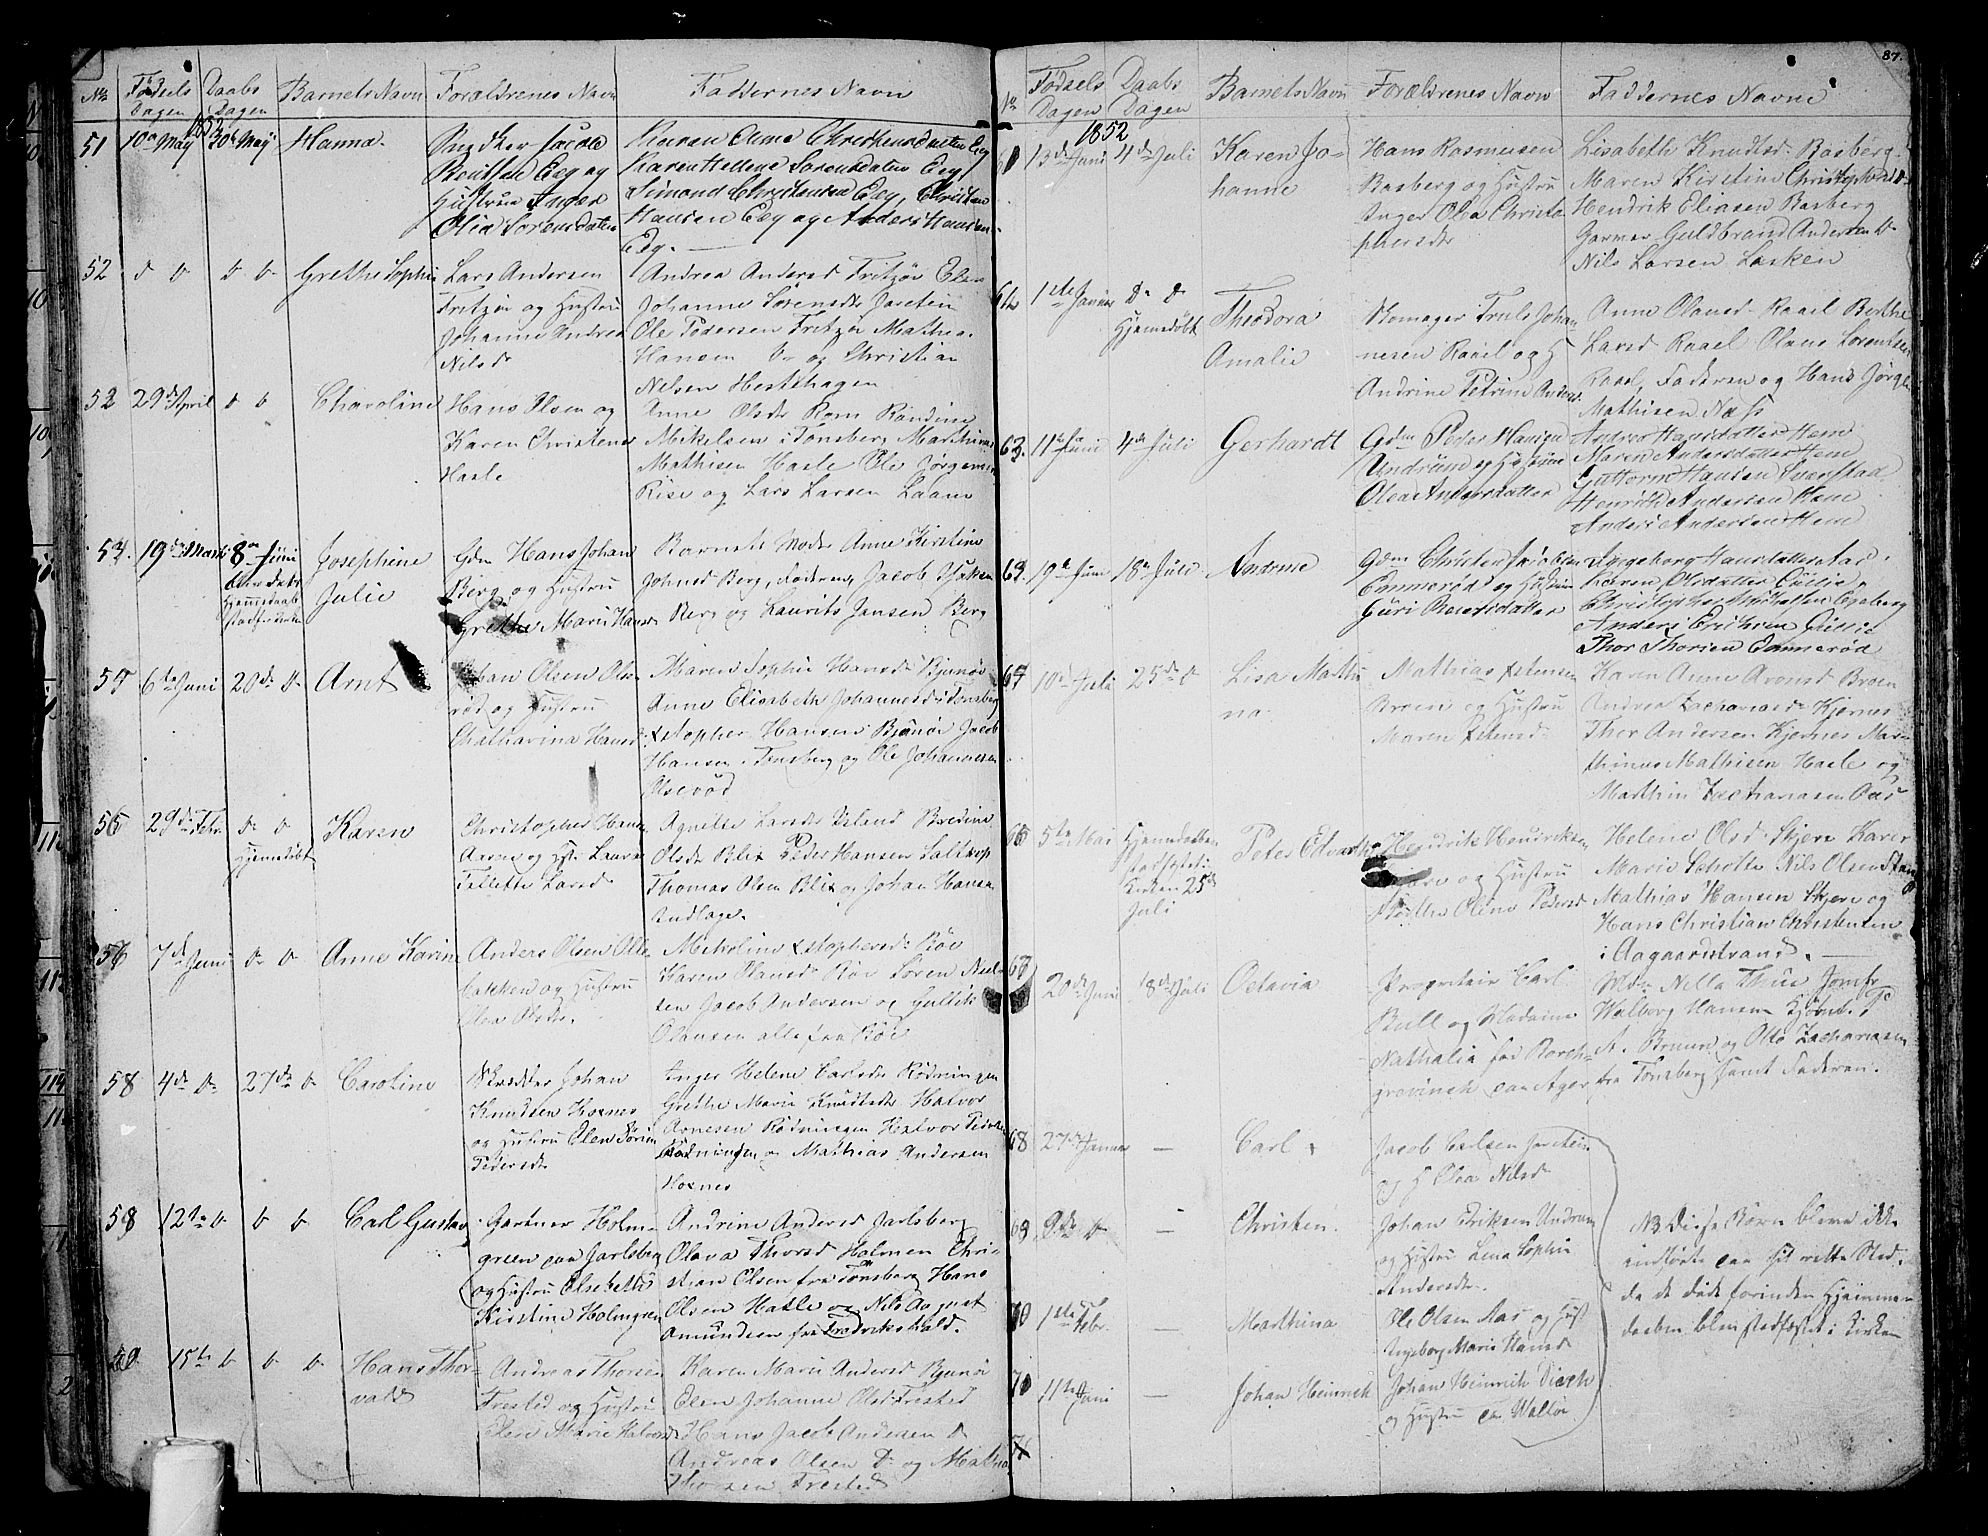 No Fødsels Dagen Daabs Dagen Barnets Navn Forældrenes Navn Faddernes Navn
1852
51 10de May 30te May Hanna.
Huustrue Inger
Olea Sorensdatter
Maren Anne Christensdatter Eeg
Karen Hellene Sorensdatter Eeg
Simond Christensen Eeg, Christen
Hansen Eeg og Anders Hansen
Eeg.
52 d D D D Grethe Sophie
Lars Andersen
Fritzøe og Hustru
Johanne Andrea
Nilsd
Andrea Andersd Fritzøe Elen
Johanne Sørensdr Jareteen
Ole Pedersen Fritzøe Mathias
Hansen D og Christian
Nelsen Hestehagen
52 29de April D D Charoline
Hans Olsen og
Karen Christense
Hasle
Anne Olsdr Rom Randine
Mikelsen i Tønsberg Marthinus
Mathisen Hasle Ole Jørgensen
Rise og Lars Larsen Laane
54. 19de Marts 8de Juni
Josephine
Julie
Gdm Hans Johan
Berg og Hustru
Grethe Marie Hansd
Barnets Moder Anne Kirstine
Johnsd Berg, Faderen, Jacob Isaksen
Berg og Laurits Jansen Berg
55 6te Juni 20de D Arnt
Johan Olsen Olse
rød og Hustru
Chatharina Hansd
Maren Sophie Hansdr Bjunør
Anne Elisabeth Johannesd i Tønsberg
Xstopher Hansen Bjunør Jacob
Hansen i Tønsberg og Ole Johannesen
Olserød
56 29de Febr. D D
Hjemedøbt
Karen
Christopher Hansen
Aarnes og Hst. Laura
Tallette Larsd
Agnette Larsdr Island Bredine
Olsdr Blix Peder Hansen Saltkop
Thomas Olsen Blix og Johan Hansen
Indlage.
56 7de Juni D D Anne Karine
Anders Olsen Olle
bakken og Hustru
Olea Olsdr.
Mekoline Xstophersdr Røe
Karen Olausdr Røe Søren Niel
sen Jacob Andersen og Gullik
Olausen alle fra Røe
58 4de D 27de D Caroline
Skrædder Johan
Knudsen Hoxnes
og Hustru Elen Sørine
Pedersdr
Inger Helene Carlsdr Rødningen
Grethe Marie Knudsdr Halvor
Arnesen Rødningen Halvor Pedersen
Rødningen og Mathias Andersen
Hoxnes
59 12te D D D Carl Gustav
Gartner Holm
green paa Jarlsberg
og Hustru Elsebeth
Kirstine Holmgreen
Andrine Andersd Jarlsberg
Olava Thorsd Holmen Chri
stian Olsen fra Tønsberg Hans
Olsen Hasle og Nils August
Amundsen fra Fredrikshald.
60 15te D D D Hans Thor
vald
Andreas Thorsen
Trested og Hustru
Elen Marie Halvorsd
Karen Marie Andersd Bjunør
Elen Johanne Olsd Trested
Hans Jacob Andersen D
Andreas Olsen D og Mathias
Thorsen Trested
87.
No Fødsels Dagen Daabs Dagen Barnets Navn Forældrenes Navn Faddernes Navne
1852
61 13de Juni 4de Juli Karen Jo-
hanne
Hans Rasmusen
Basberg og Hustru
Inger Olea Christo
phersdr
Lisabeth Knudsd Basberg
Maren Kirstine Christophersd D
Hendrik Eliasen Basberg
Garmer Guldbrand Andersen D
Nils Larsen Lasken
62 1ste Januar D D
Hjemmedøbt
Theodora
Amalie
Skomager Truls Johan
nesen Raael og H
Andrine Petrine Andersd
Anne Olausd Raael Berthe
Larsd Raael Olaus Lorentsen
Raael, Faderen og Hans Jørgen
Mathisen Næss
63. 11te Juni 4de Juli Gerhardt
Gdm Peder Hansen
Undrum og Hustrue
Olea Andersdatter
Andrea Hansdatter Hem
Maren Andersdatter Hem
Guttorm Hansen Sverstad
Henrik Andersen Hem
Anders Andersen Hem
63. 19de Juni 18de Juli Andrine
Gdm Christen Jacobsen
Emmerød og Hustrue
Guri
Ingeborg Hansdatter Aas
Karen Olsdatter Gullie
Christopher Mikkelsen Egeberg
Anders Eriksen Gullie
Thor Thorsen Emmerød
64 10de Juli 25de D Lisa Mathi
na
Mathias Xstensen
Broen og Hustru
Maren Xstensd
Karen Anne Aronsd Broen
Andrea Zachariasd Kjernes
Thor Andersen Kjernes Mar
thinus Mathisen Hasle og
Marthin Zachariasen Aas
66 5te Mai Hjemmedøbt
stadfæstet i
Kirken 25de
Juli
Peter Edvard
Hendrik Hendriksen
Skjære og Hustru
Berthe Oline Pedersd
Helene Olsd Skjere Karen
Marie Scholte Nils Olsen Stang
Mathias Hansen Skjere og
Hans Christian Christensen
i Aagaardstrand.
67
20de Juni 18de Juli Octavia
Proprietair Carl
Bull og Madame
Nathalia før Borch
grevinck paa Ager
Mdm Nella Thue Jomfr
Walborg Hansen Kjøbmd. P
A. Bruun og Otto Zachariasen
fra Tønsberg samt Faderen.
68 27de Januar — Carl
Jacob Carlsen Jarstein
og H Olea Nilsd
69 9de D — Christen
Johan Eriksen Undrum
og Hustru Lena Sophie
Andersdr.
70 1ste Febr. — Marthina
Ole Olsen Aas og Hust
Ingeborg Marie Hansd
70 11te Juni — Johan Heinrich
Johan Heinrich
og Hustru paa Walløe
NB Disse Børn bleve ikke
indførte paa sit rette Sted,
da de døde forinden Hjemme
daaben blev stadfæstet i Kirken